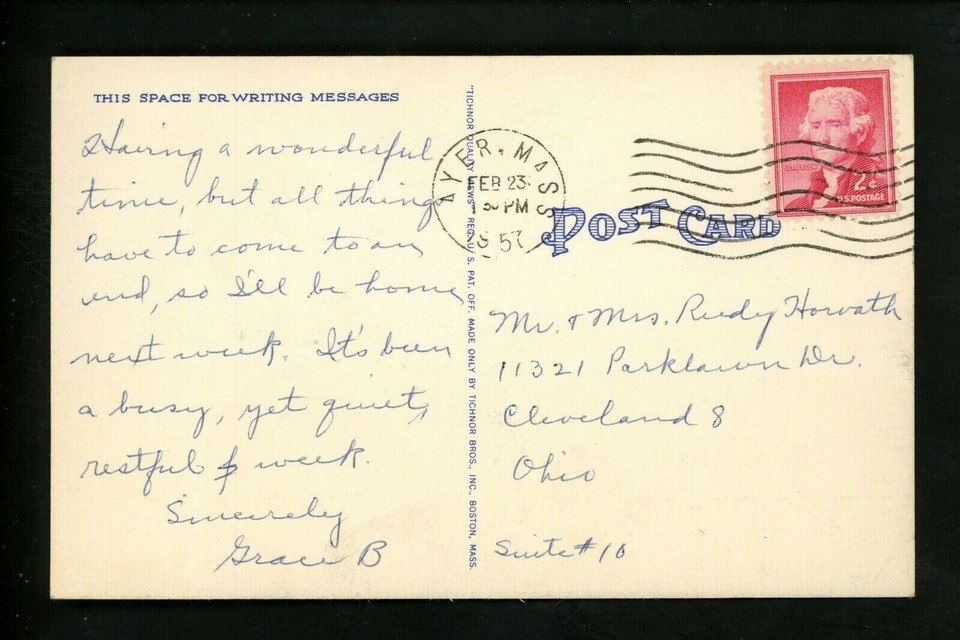 THIS SPACE FOR WRITING MESSAGES
Having a wonderful
time, but all things
have to come to an
end, so I'll be home
next week. It's been
a busy, yet quiet,
restful week.
Sincerely
Grace B
"TICHNOR QUALITY VIEWS" REG. U. S. PAT. OFF. MADE ONLY BY TICHNOR BROS., INC., BOSTON, MASS.
AYER, MASS
FEB 23
PM
57
POST CARD
JEFFERSON
2¢
U.S. POSTAGE
Mr. & Mrs. Rudy Horvath
11321 Parklawn Dr.
Cleveland 8
Ohio
Suite #10